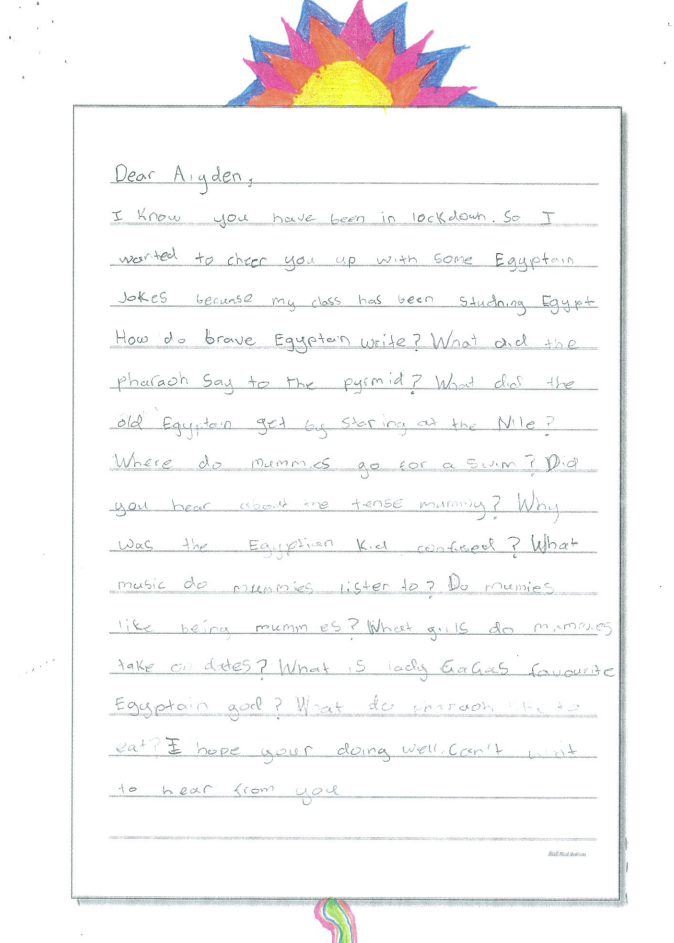 Dear Aigden,
I know you have been in lockdown. So I
wanted to cheer you up with some Egyptain
Jokes because my class has been studning Egypt
How do brave Egyptain write? What did the
pharaoh say to the pyrmid? What did the
old Egyptain get by staring at the Nile?
Where do mummies go for a swim? Did
you hear about the tense mummy? Why
was the Egyptian kid confised? What
music do mummies listen to? Do mumies
like being mummies? What girls do mummies
take on dates? What is lady GaGas favourite
Egyptain god? What do pharaoh like to
eat? I hope your doing well. Can't wait
to hear from you